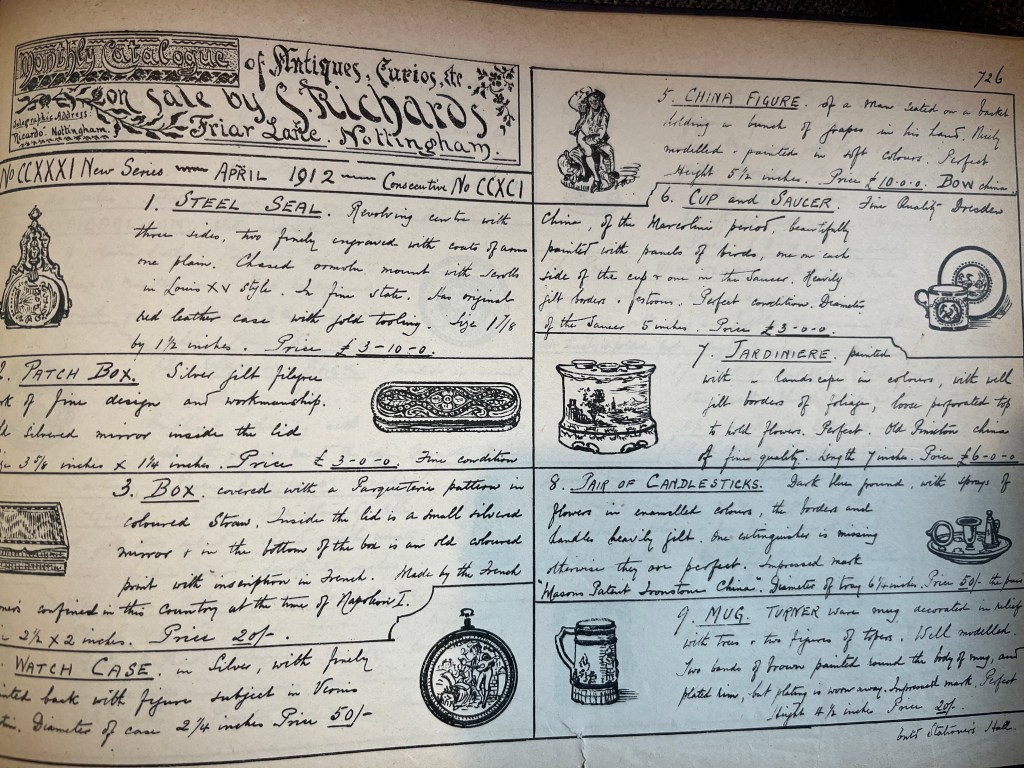 Monthly Catalogue
of Antiques, Curios, &c
on sale by S. Richards
Telegraphic Address:
"Ricardo" Nottingham.
Friar Lane. Nottingham.
No CCXXXI New Series — APRIL 1912 — Consecutive No CCXCI
1. STEEL SEAL. Revolving centre with
three sides, two finely engraved with coats of arms
one plain. Chased ormolu mount with scrolls
in Louis XV style. In fine state. Has original
red leather case with gold tooling. Size 1 7/8
by 1 1/2 inches. Price £3-10-0.
2. PATCH BOX. Silver gilt filigree
of fine design and workmanship.
silvered mirror inside the lid
3 5/8 inches x 1 1/4 inches. Price £3-0-0. Fine condition
3. BOX. covered with a Parqueterie pattern in
coloured Straw. Inside the lid is a small silvered
mirror & in the bottom of the box is an old coloured
print with inscription in French. Made by the French
confined in this Country at the time of Napoleon I.
2 1/2 x 2 inches. Price 20/-.
WATCH CASE. in Silver, with finely
back with figure subject in Vernis
Diameter of case 2 1/4 inches Price 50/-
726
5. CHINA FIGURE. of a man seated on a basket
holding a bunch of grapes in his hand. Nicely
modelled & painted in soft colours. Perfect
Height 5 1/2 inches. Price £10-0-0. BOW china
6. CUP and SAUCER. Fine Quality Dresden
China, of the Marcolini period, beautifully
painted with panels of birds, one on each
side of the cup & one in the Saucer. Heavily
gilt borders & festoons. Perfect condition. Diameter
of the Saucer 5 inches. Price £3-0-0.
7. JARDINIERE. painted
with a landscape in colours, with well
gilt borders of foliage, loose perforated top
to hold flowers. Perfect. Old china
of fine quality. Length 7 inches. Price £6-0-0
8. PAIR OF CANDLESTICKS. Dark blue ground, with sprays of
flowers in enamelled colours, the borders and
handles heavily gilt. One extinguisher is missing
otherwise they are perfect. Impressed mark
"Masons Patent Ironstone China". Diameter of tray 6 1/4 inches. Price 50/- the pair
9. MUG. TURNER ware mug decorated in relief
with trees & two figures of topers. Well modelled.
Two bands of brown painted round the body of mug, and
plated rim, but plating is worn away. Impressed mark. Perfect
Height 4 1/2 inches Price 20/-.
Entd Stationers Hall.